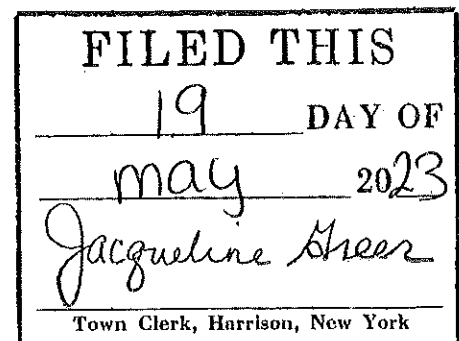 FILED THIS
19 DAY OF
may 2023
Jacqueline Greer
Town Clerk, Harrison, New York